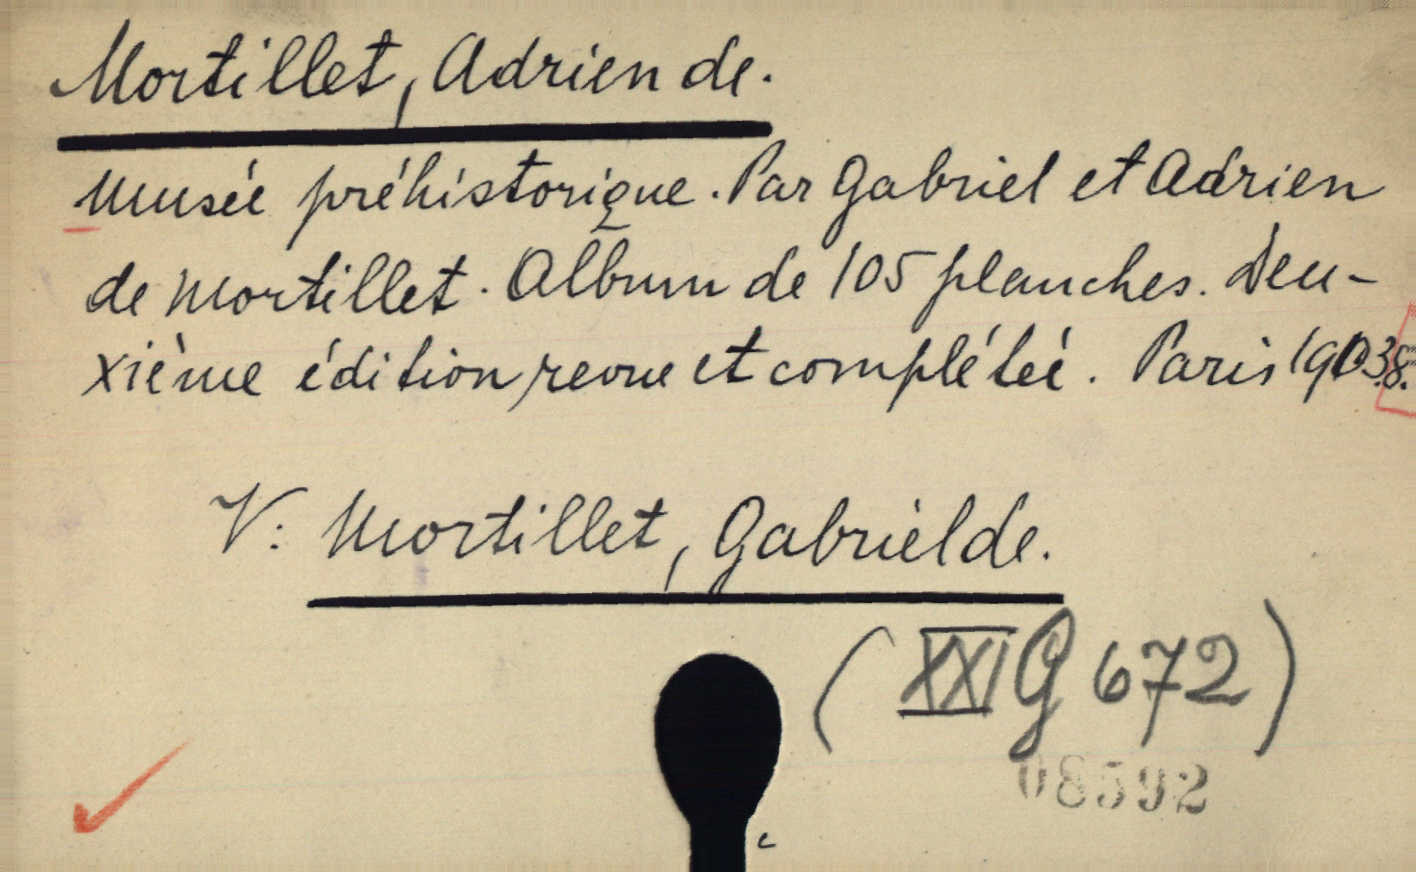 Mortillet, Adrien de.
Musée préhistorique. Par Gabriel et Adrien
de Mortillet. Album de 105 planches. Deu-
xième édition revue et complétée. Paris 1903. 8.
V: Mortillet, Gabriel de.
(XXI G 672)
08592
c